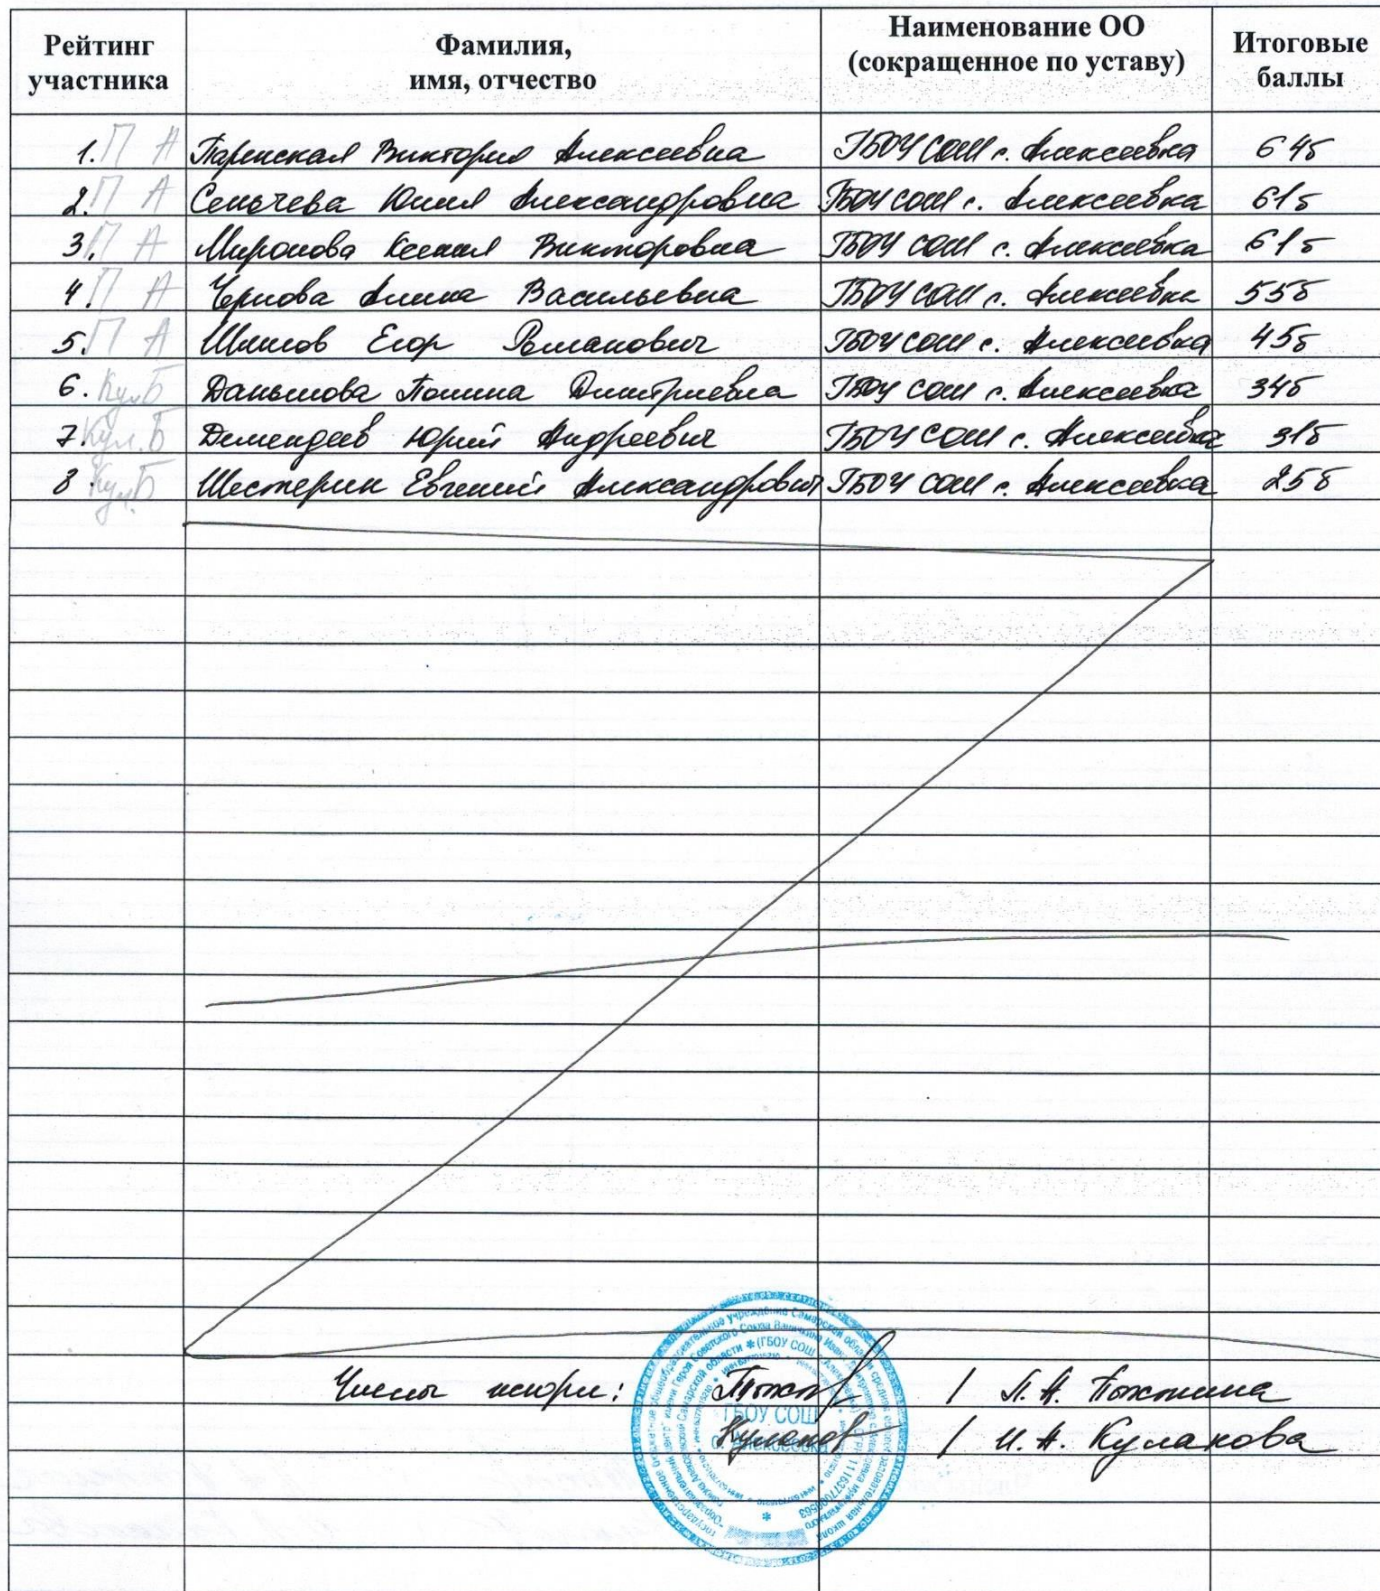 Рейтинг участника Фамилия, имя, отчество Наименование ОО (сокращенное по уставу) Итоговые баллы
1. П А Паренская Виктория Алексеевна ГБОУ СОШ с. Алексеевка 64б
2. П А Сенчева Юлия Александровна ГБОУ СОШ с. Алексеевка 61б
3. П А Миронова Ксения Викторовна ГБОУ СОШ с. Алексеевка 61б
4. П А Чернова Алина Васильевна ГБОУ СОШ с. Алексеевка 55б
5. П А Шишов Егор Романович ГБОУ СОШ с. Алексеевка 45б
6. Кул Б Даньшова Полина Дмитриевна ГБОУ СОШ с. Алексеевка 34б
7 Кул. Б Демендеев Юрий Андреевич ГБОУ СОШ с. Алексеевка 31б
8 Кул. Б Шестерин Евгений Александрович ГБОУ СОШ с. Алексеевка 25б
Члены жюри: / Л. А.
/ И. А. Кулакова
ГБОУ СОШ
с. Алексеевка